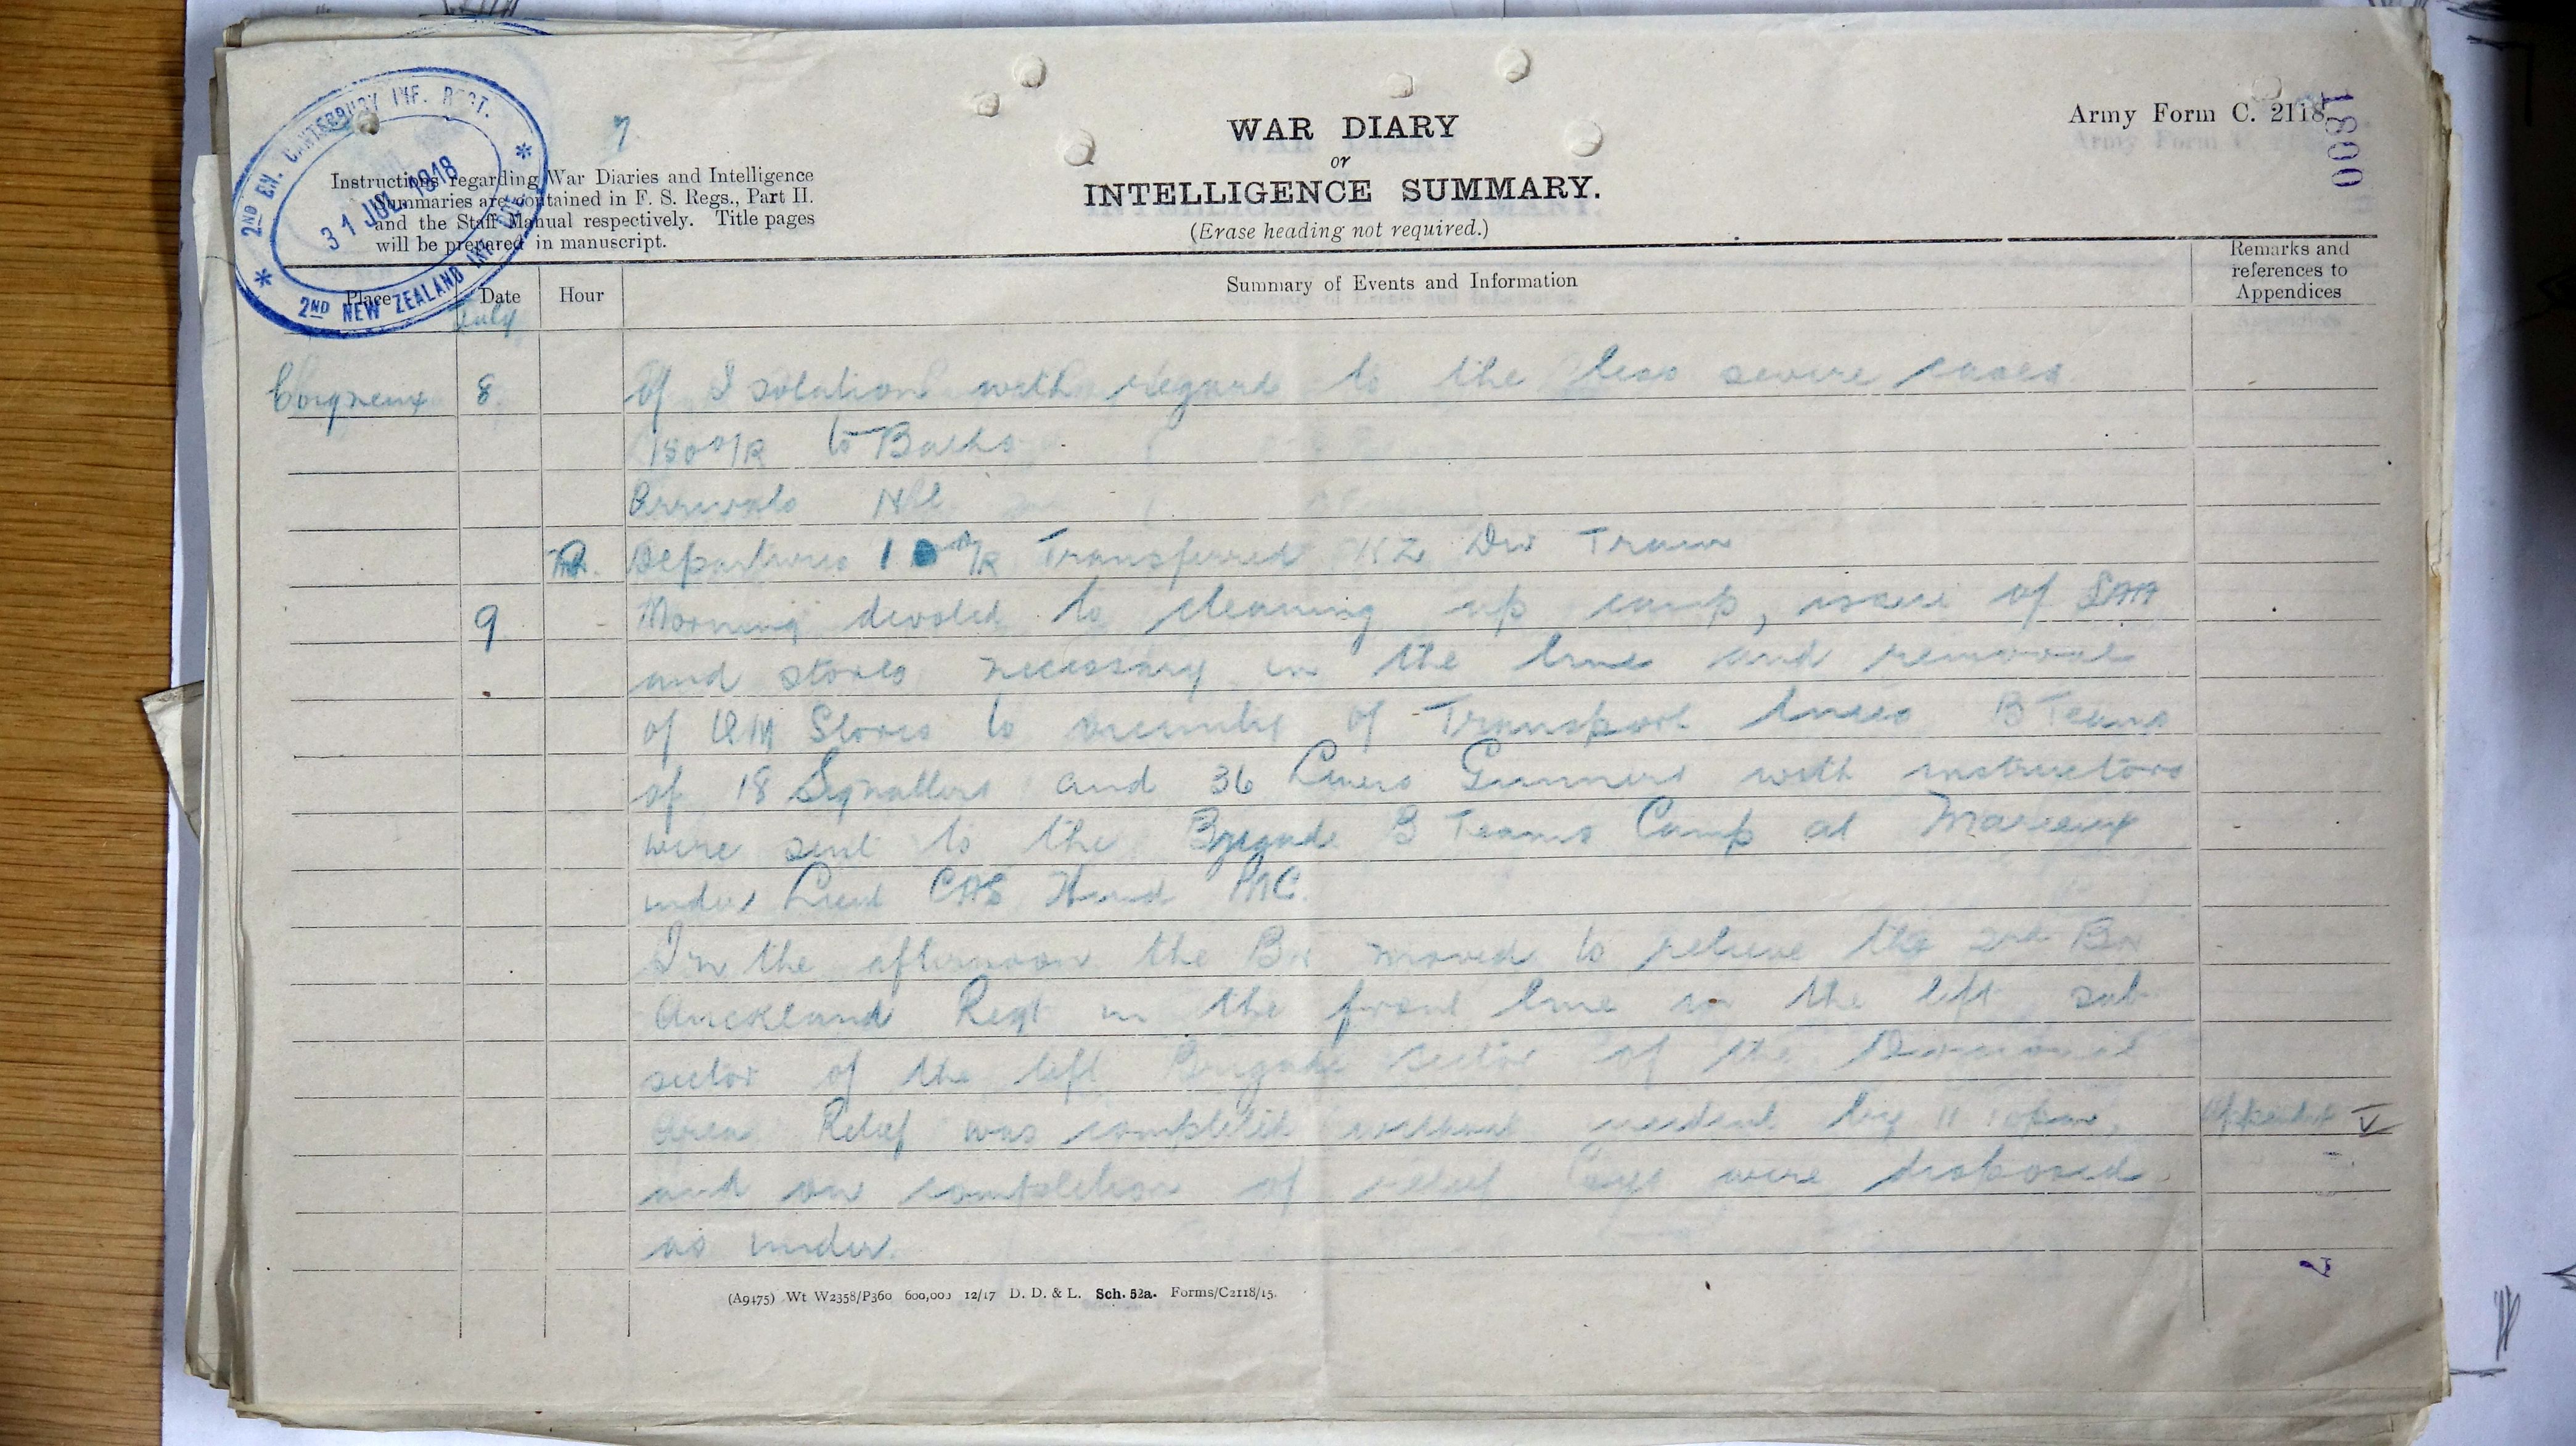 2ND BN. CANTERBURY INF. REGT.
31 JUL 1918
2ND NEW ZEALAND INF. BDE.
7
Instructions regarding War Diaries and Intelligence
Summaries are contained in F. S. Regs., Part II.
and the Staff Manual respectively. Title pages
will be prepared in manuscript.
WAR DIARY
or
INTELLIGENCE SUMMARY.
(Erase heading not required.)
Army Form C. 2118
1800
Place Date Hour Summary of Events and Information Remarks and references to Appendices
July
Coigneux 8. of Isolation with regard to the less severe cases
150 O/R to Baths
Arrivals Nil
Departures 1 O/R Transferred NZ Div Train
9 Morning devoted to cleaning up camp, issue of SAA
and stores necessary in the line and removal
of QM Stores to vicinity of Transport lines B Teams
of 18 Signallers and 36 Lewis Gunners with instructors
were sent to the Brigade B Teams Camp at Marieux
under Lieut CAS Hind MC.
In the afternoon the Bn moved to relieve the 2nd Bn
Auckland Regt in the front line in the left sub
sector of the left Brigade sector of the Divisional
Area Relief was completed without incident by 11 10pm, Appendix V
and on completion of relief Coys were disposed
as under.
7
(A9475) Wt W2358/P360 600,000 12/17 D. D. & L. Sch. 52a. Forms/C2118/15.